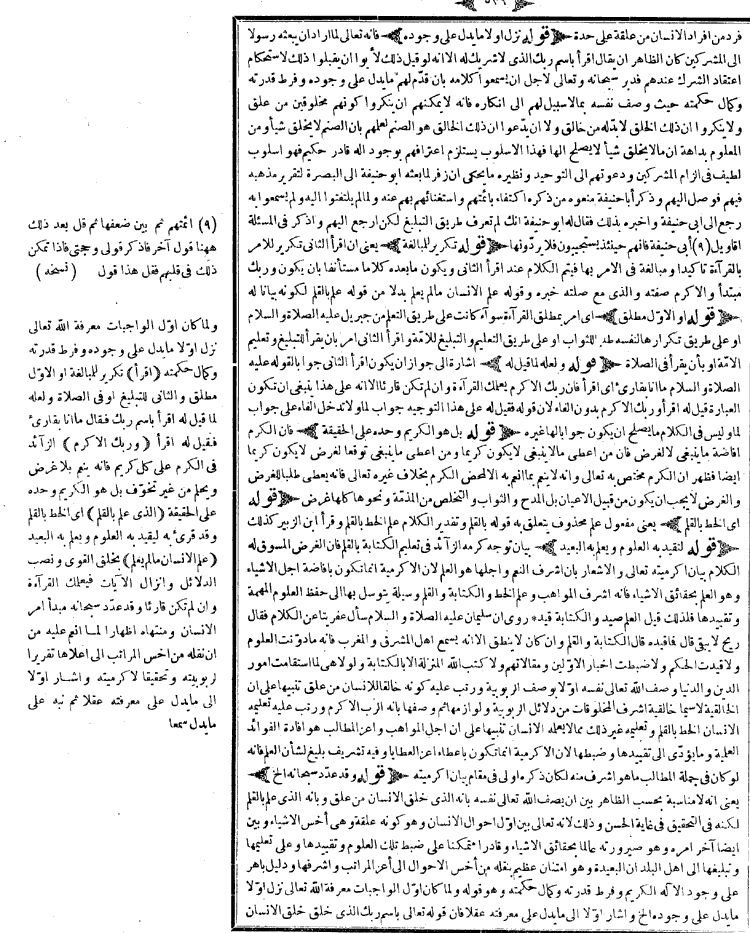 فرد من افراد الانسان من علقة على حدة ﴿قوله نزل اولا ما يدل على وجوده﴾ فانه تعالى لما اراد ان يبعثه رسولا
الى المشركين كان الظاهر ان يقال اقرأ باسم ربك الذى لا شريك له الا انه لو قيل ذلك لأبوا ان يقبلوا ذلك لاستحكام
اعتقاد الشرك عندهم فدبر سبحانه وتعالى لاجل ان يسمعوا كلامه بان قدّم لهم ما يدل على وجوده وفرط قدرته
وكمال حكمته حيث وصف نفسه بما لا سبيل لهم الى انكاره فانه لا يمكنهم ان ينكروا كونهم مخلوقين من علق
ولا ينكروا ان ذلك الخلق لا بدّ له من خالق ولا ان يدعوا ان ذلك الخالق هو الصنم لعلمهم بان الصنم لا يخلق شيأ ومن
المعلوم بداهة ان ما لا يخلق شيأ لا يصلح الها فهذا الاسلوب يستلزم اعترافهم بوجود اله قادر حكيم فهو اسلوب
لطيف فى الزام المشركين ودعوتهم الى التوحيد ونظيره ما يحكى ان زفر لما بعثه ابو حنيفة الى البصرة لتقرير مذهبه
فيهم فوصل اليهم وذكر أبا حنيفة منعوه من ذكره اكتفاء بائمتهم واستغنائهم بهم عنه ولم يلتفتوا اليه ولم يسمعوا به
رجع الى ابى حنيفة واخبره بذلك فقال له ابو حنيفة انك لم تعرف طريق التبليغ لكن ارجع اليهم واذكر فى المسئلة
اقاويل (٩) أبى حنيفة فانهم حينئذ يستجيبون فلا يردّونها ﴿قوله تكرير للمبالغة﴾ يعنى ان اقرأ الثانى تكرير للامر
بالقرآءة تأكيدا ومبالغة فى الامر بها فيتم الكلام عند اقرأ الثانى ويكون ما بعده كلاما مستأنفا بان يكون وربك
مبتدأ والاكرم صفته والذى مع صلته خبره وقوله علم الانسان ما لم يعلم بدلا من قوله علم بالقلم لكونه بيانا له
﴿قوله او الاوّل مطلق﴾ اى امر بمطلق القرآءة سوآء كانت على طريق التعلم من جبريل عليه الصلاة والسلام
او على طريق تكرارها لنفسه طلبا للثواب او على طريق التعليم والتبليغ للامّة واقرأ الثانى امر بان يقرأ للتبليغ وتعليم
الامّة او بأن يقرأ فى الصلاة ﴿قوله ولعله لما قيل له﴾ اشارة الى جواز ان يكون اقرأ الثانى جوابا لقوله عليه
الصلاة والسلام ما انا بقارئ اى اقرأ فان ربك الاكرم يعلمك القرآءة وان لم تكن قارئا الا انه على هذا ينبغى ان تكون
العبارة قيل له اقرأ وربك الاكرم بدون الفاء لان قوله فقيل له على هذا التوجيه جواب لما ولا تدخل الفاء على جواب
لما وليس فى الكلام ما يصلح ان يكون جوابا لها غيره ﴿قوله بل هو الكريم وحده على الحقيقة﴾ فان الكرم
افاضة ما ينبغى لا لغرض فان من اعطى ما لا ينبغى لا يكون كريما ومن اعطى ما ينبغى توقعا لغرض لا يكون كريما
ايضا فظهر ان الكرم مختص به تعالى وانه لا ينعم بما انعم به الا لمحض الكرم بخلاف غيره تعالى فانه يعطى طلبا للغرض
والغرض لا يجب ان يكون من قبيل الاعيان بل المدح والثواب والتخلص من المذمّة ونحوها كلها غرض ﴿قوله
اى الخط بالقلم﴾ يعنى مفعول علم محذوف يتعلق به قوله بالقلم وتقدير الكلام علم الخط بالقلم وقرأ ابن الزبير كذلك
﴿قوله لتقيد به العلوم ويعلم به البعيد﴾ بيان توجه كرمه الزآئد فى تعليم الكتابة بالقلم فان الغرض المسوق له
الكلام بيان اكرميته تعالى والاشعار بان اشرف النعم واجلها هو العلم لان الاكرمية انما تكون بافاضة اجل الاشياء
وهو العلم بحقائق الاشياء فانه اشرف المواهب وعلم الخط والكتابة والقلم وسيلة يتوسل بها الى حفظ العلوم المهمة
وتقييدها فلذلك قيل العلم صيد والكتابة قيد * روى ان سليمان عليه الصلاة والسلام سأل عفريتا عن الكلام فقال
ريح لا يبقى قال فما قيده قال الكتابة والقلم وان كان لا ينطق الا انه يسمع اهل المشرق والمغرب فانه ما دوّنت العلوم
ولا قيدت الحكم ولا ضبطت اخبار الاوّلين ومقالاتهم ولا كتب اللّه المنزلة الا بالكتابة ولولا هى لما استقامت امور
الدين والدنيا وصف اللّه تعالى نفسه اوّلا بوصف الربوبية ورتب عليه كونه خالقا للانسان من علق تنبيها على ان
الخالقية لا سيما خالقية اشرف المخلوقات من دلائل الربوبية ولوازمها ثم وصفها بانه الرب الاكرم ورتب عليه تعليمه
الانسان الخط بالقلم وتعليمه غير ذلك مما لا يعلمه الانسان تنبيها على ان اجل المواهب واعز المطالب هو افادة الفوائد
العلمية وما يؤدّى الى تقييدها وضبطها لان الاكرمية انما تكون باعطاء اعز العطايا وفيه تشريف بليغ لشأن العلم فانه
لو كان فى جملة المطالب ما هو اشرف منه لكان ذكره اولى فى مقام بيان اكرميته ﴿قوله وقد عدّد سبحانه الخ﴾
يعنى انه لا مناسبة بحسب الظاهر بين ان يصف اللّه تعالى نفسه بانه الذى خلق الانسان من علق وبانه الذى علم بالقلم
لكنه فى التحقيق فى غاية الحسن وذلك لانه تعالى بين اوّل احوال الانسان وهو كونه علقة وهى أخس الاشياء وبين
ايضا آخر امره وهو صيرورته عالما بحقائق الاشياء وقادرا متمكنا على ضبط تلك العلوم وتقييدها وعلى تعليمها
وتبليغها الى اهل البلدان البعيدة وهو امتنان عظيم بنقله من أخس الاحوال الى أعز المراتب واشرفها ودليل باهر
على وجود الاله الكريم وفرط قدرته وكمال حكمته وهو قوله ولما كان اوّل الواجبات معرفة اللّه تعالى نزل اوّلا
ما يدل على وجوده الخ واشار اوّلا الى ما يدل على معرفته عقلا فان قوله تعالى باسم ربك الذى خلق خلق الانسان
(٩) ائمتهم ثم بين ضعفها ثم قل بعد ذلك
ههنا قول آخر فاذكر قولى وحجتى فاذا تمكن
ذلك فى قلبهم فقل هذا قول (نسخه)
ولما كان اوّل الواجبات معرفة اللّه تعالى
نزل اوّلا ما يدل على وجوده وفرط قدرته
وكمال حكمته (اقرأ) تكرير للمبالغة او الاوّل
مطلق والثانى للتبليغ او فى الصلاة ولعله
لما قيل له اقرأ باسم ربك فقال ما انا بقارئ
فقيل له اقرأ (وربك الاكرم) الزآئد
فى الكرم على كل كريم فانه ينعم بلا غرض
ويحلم من غير تخوّف بل هو الكريم وحده
على الحقيقة (الذى علم بالقلم) اى الخط بالقلم
وقد قرئ به ليقيد به العلوم ويعلم به البعيد
(علم الانسان ما لم يعلم) بخلق القوى ونصب
الدلائل وانزال الآيات فيعلمك القرآءة
وان لم تكن قارئا وقد عدّد سبحانه مبدأ امر
الانسان ومنتهاه اظهارا لما انعم عليه من
ان نقله من اخس المراتب الى اعلاها تقريرا
لربوبيته وتحقيقا لاكرميته واشار اوّلا
الى ما يدل على معرفته عقلا ثم نبه على
ما يدل سمعا